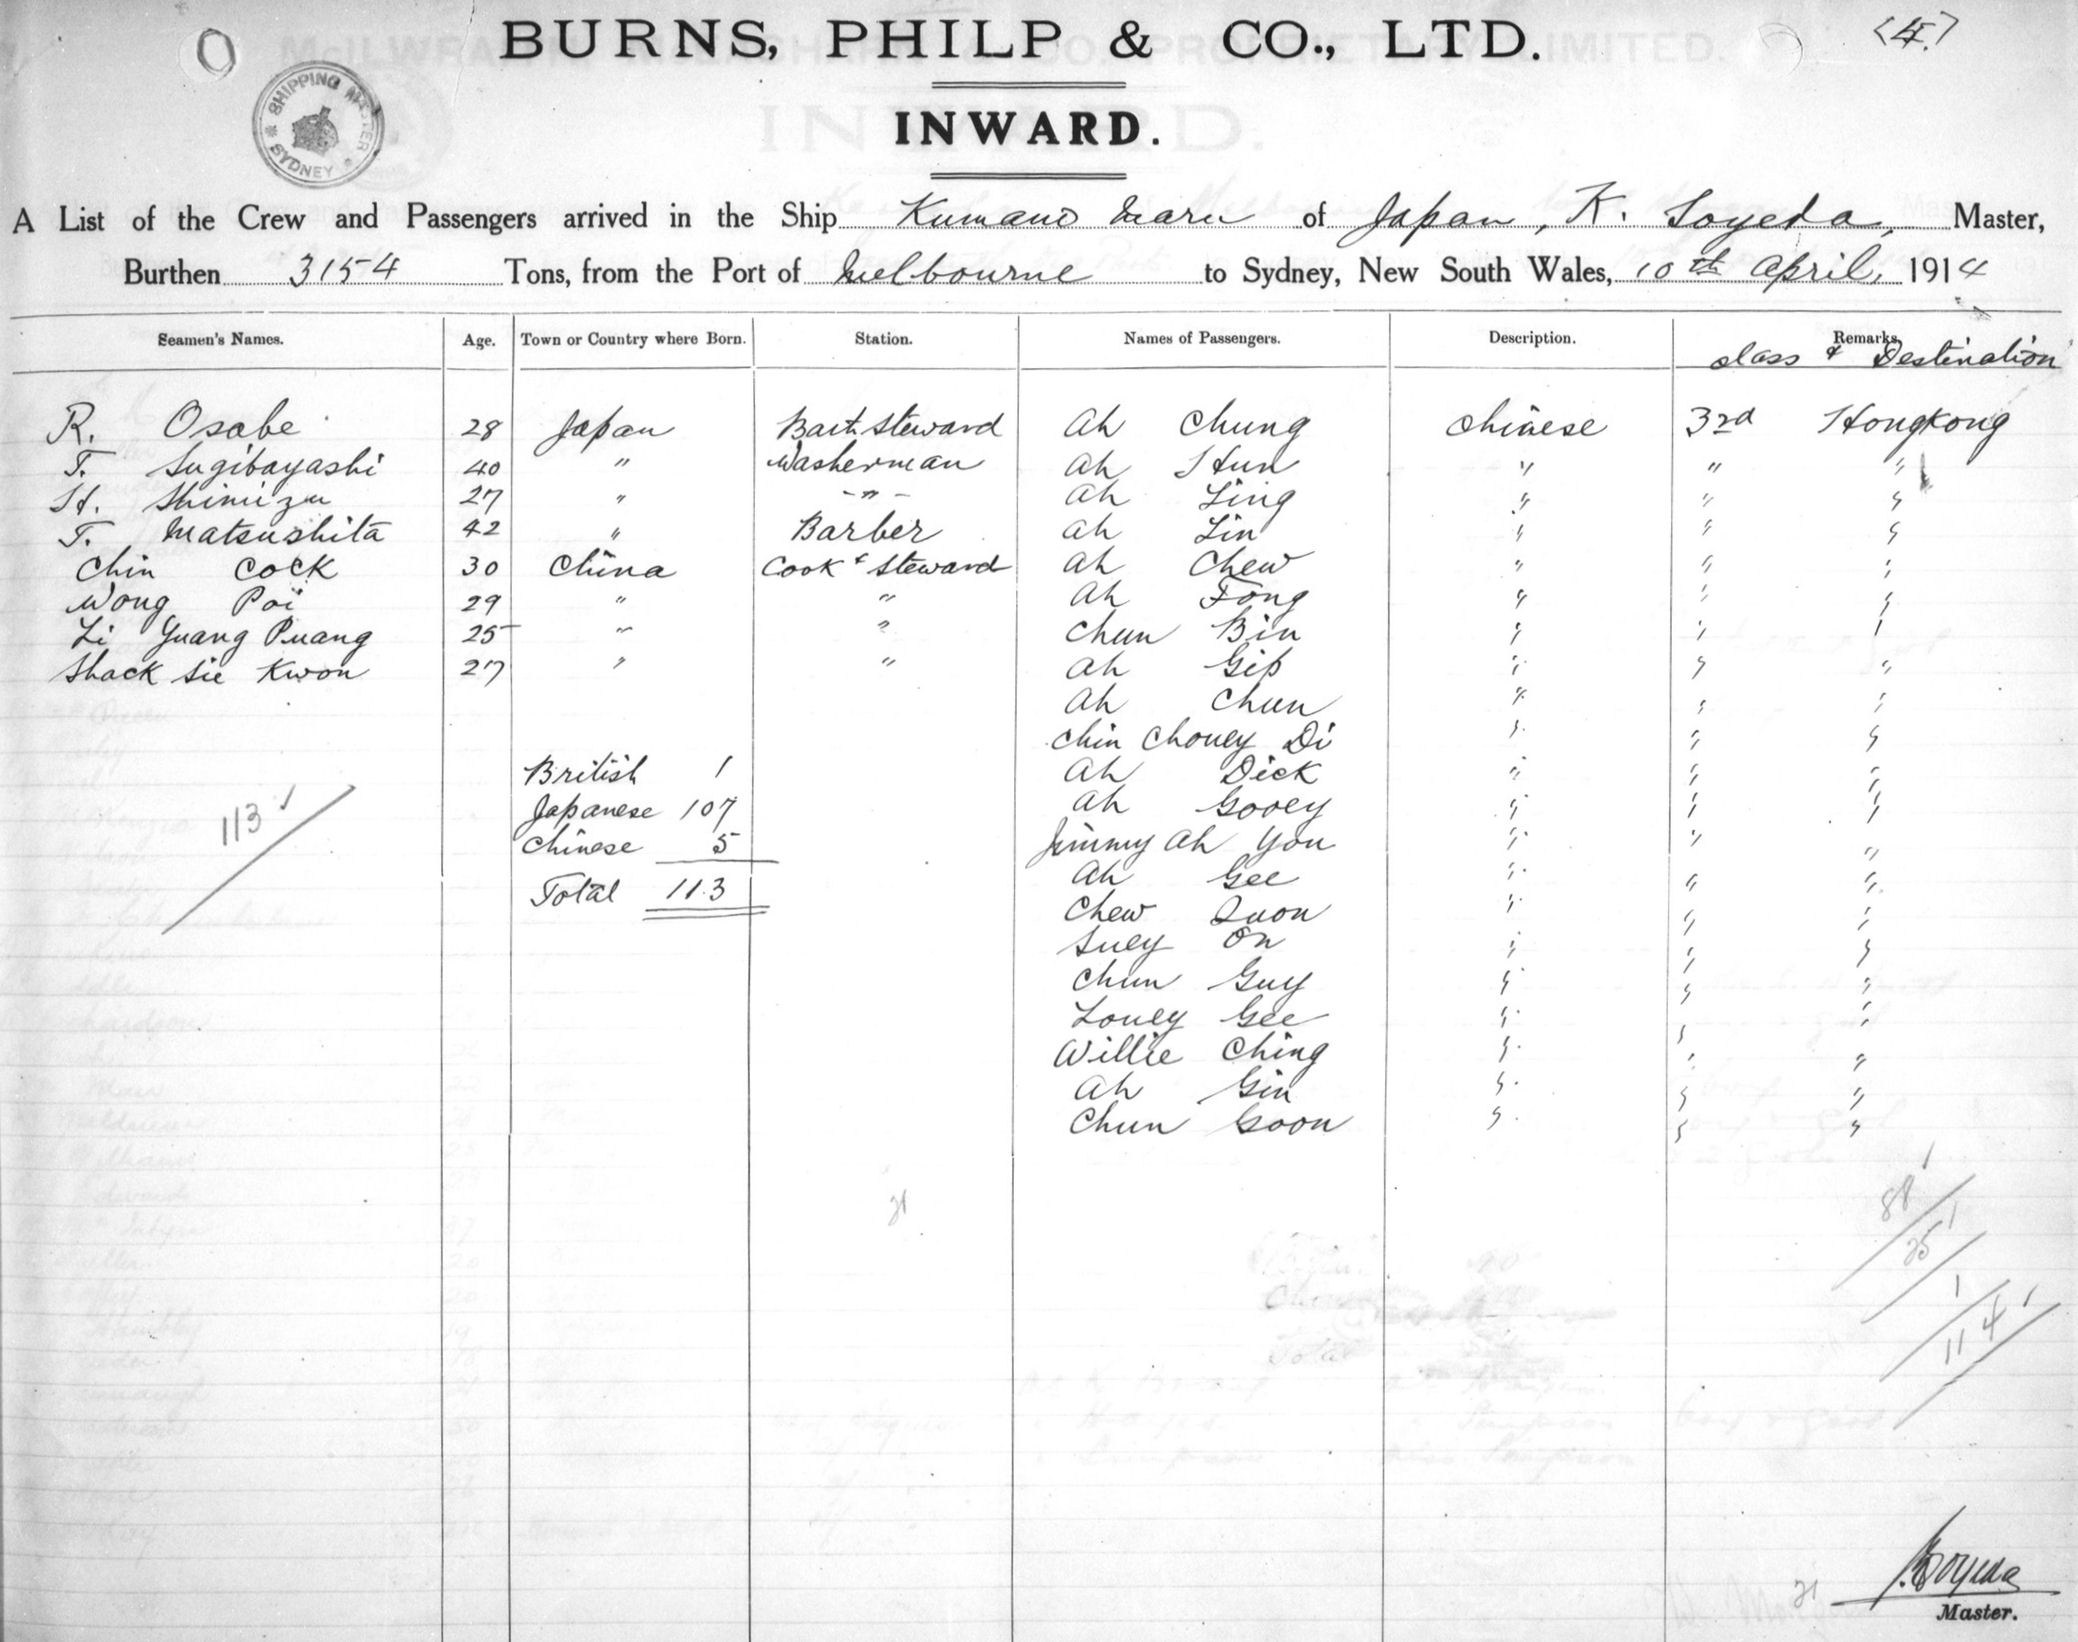 BURNS, PHILP & CO., LTD.
<4.>
SHIPPING MASTER
SYDNEY
INWARD.
A List of the Crew and Passengers arrived in the Ship Kumano Maru of Japan, K. Soyeda, Master,
Burthen 3154 Tons, from the Port of Melbourne to Sydney, New South Wales, 10th April, 1914
Seamen's Names. Age. Town or Country where Born. Station. Names of Passengers. Description. Remarks
class & Destination
R. Osabe 28 Japan Bart. Steward Ah Chung Chinese 3rd Hongkong
T. Sugibayashi 40 " Washerman Ah Hun " " "
H. Shimizu 27 " - " - Ah Ling " " "
T. Matsushita 42 " Barber Ah Lin " " "
Chin Cock 30 China Cook & Steward Ah Chew " " "
Wong Poi 29 " " Ah Fong " " "
Li Yuang Puang 25 " " Chun Bin " " "
Shack Sie Kwon 27 " " Ah Gip " " "
Ah Chun " " "
Chin Choney Di " " "
British 1 Ah Dick " " "
113 Japanese 107 Ah Gooey " " "
Chinese 5 Jimmy Ah You " " "
Total 113 Ah Gee " " "
Chew Quon " " "
Suey On " " "
Chun Guy " " "
Louey Gee " " "
Willie Ching " " "
Ah Gin " " "
Chun Goon " " "
88
21
25
1
114
K. Soyeda
21
Master.